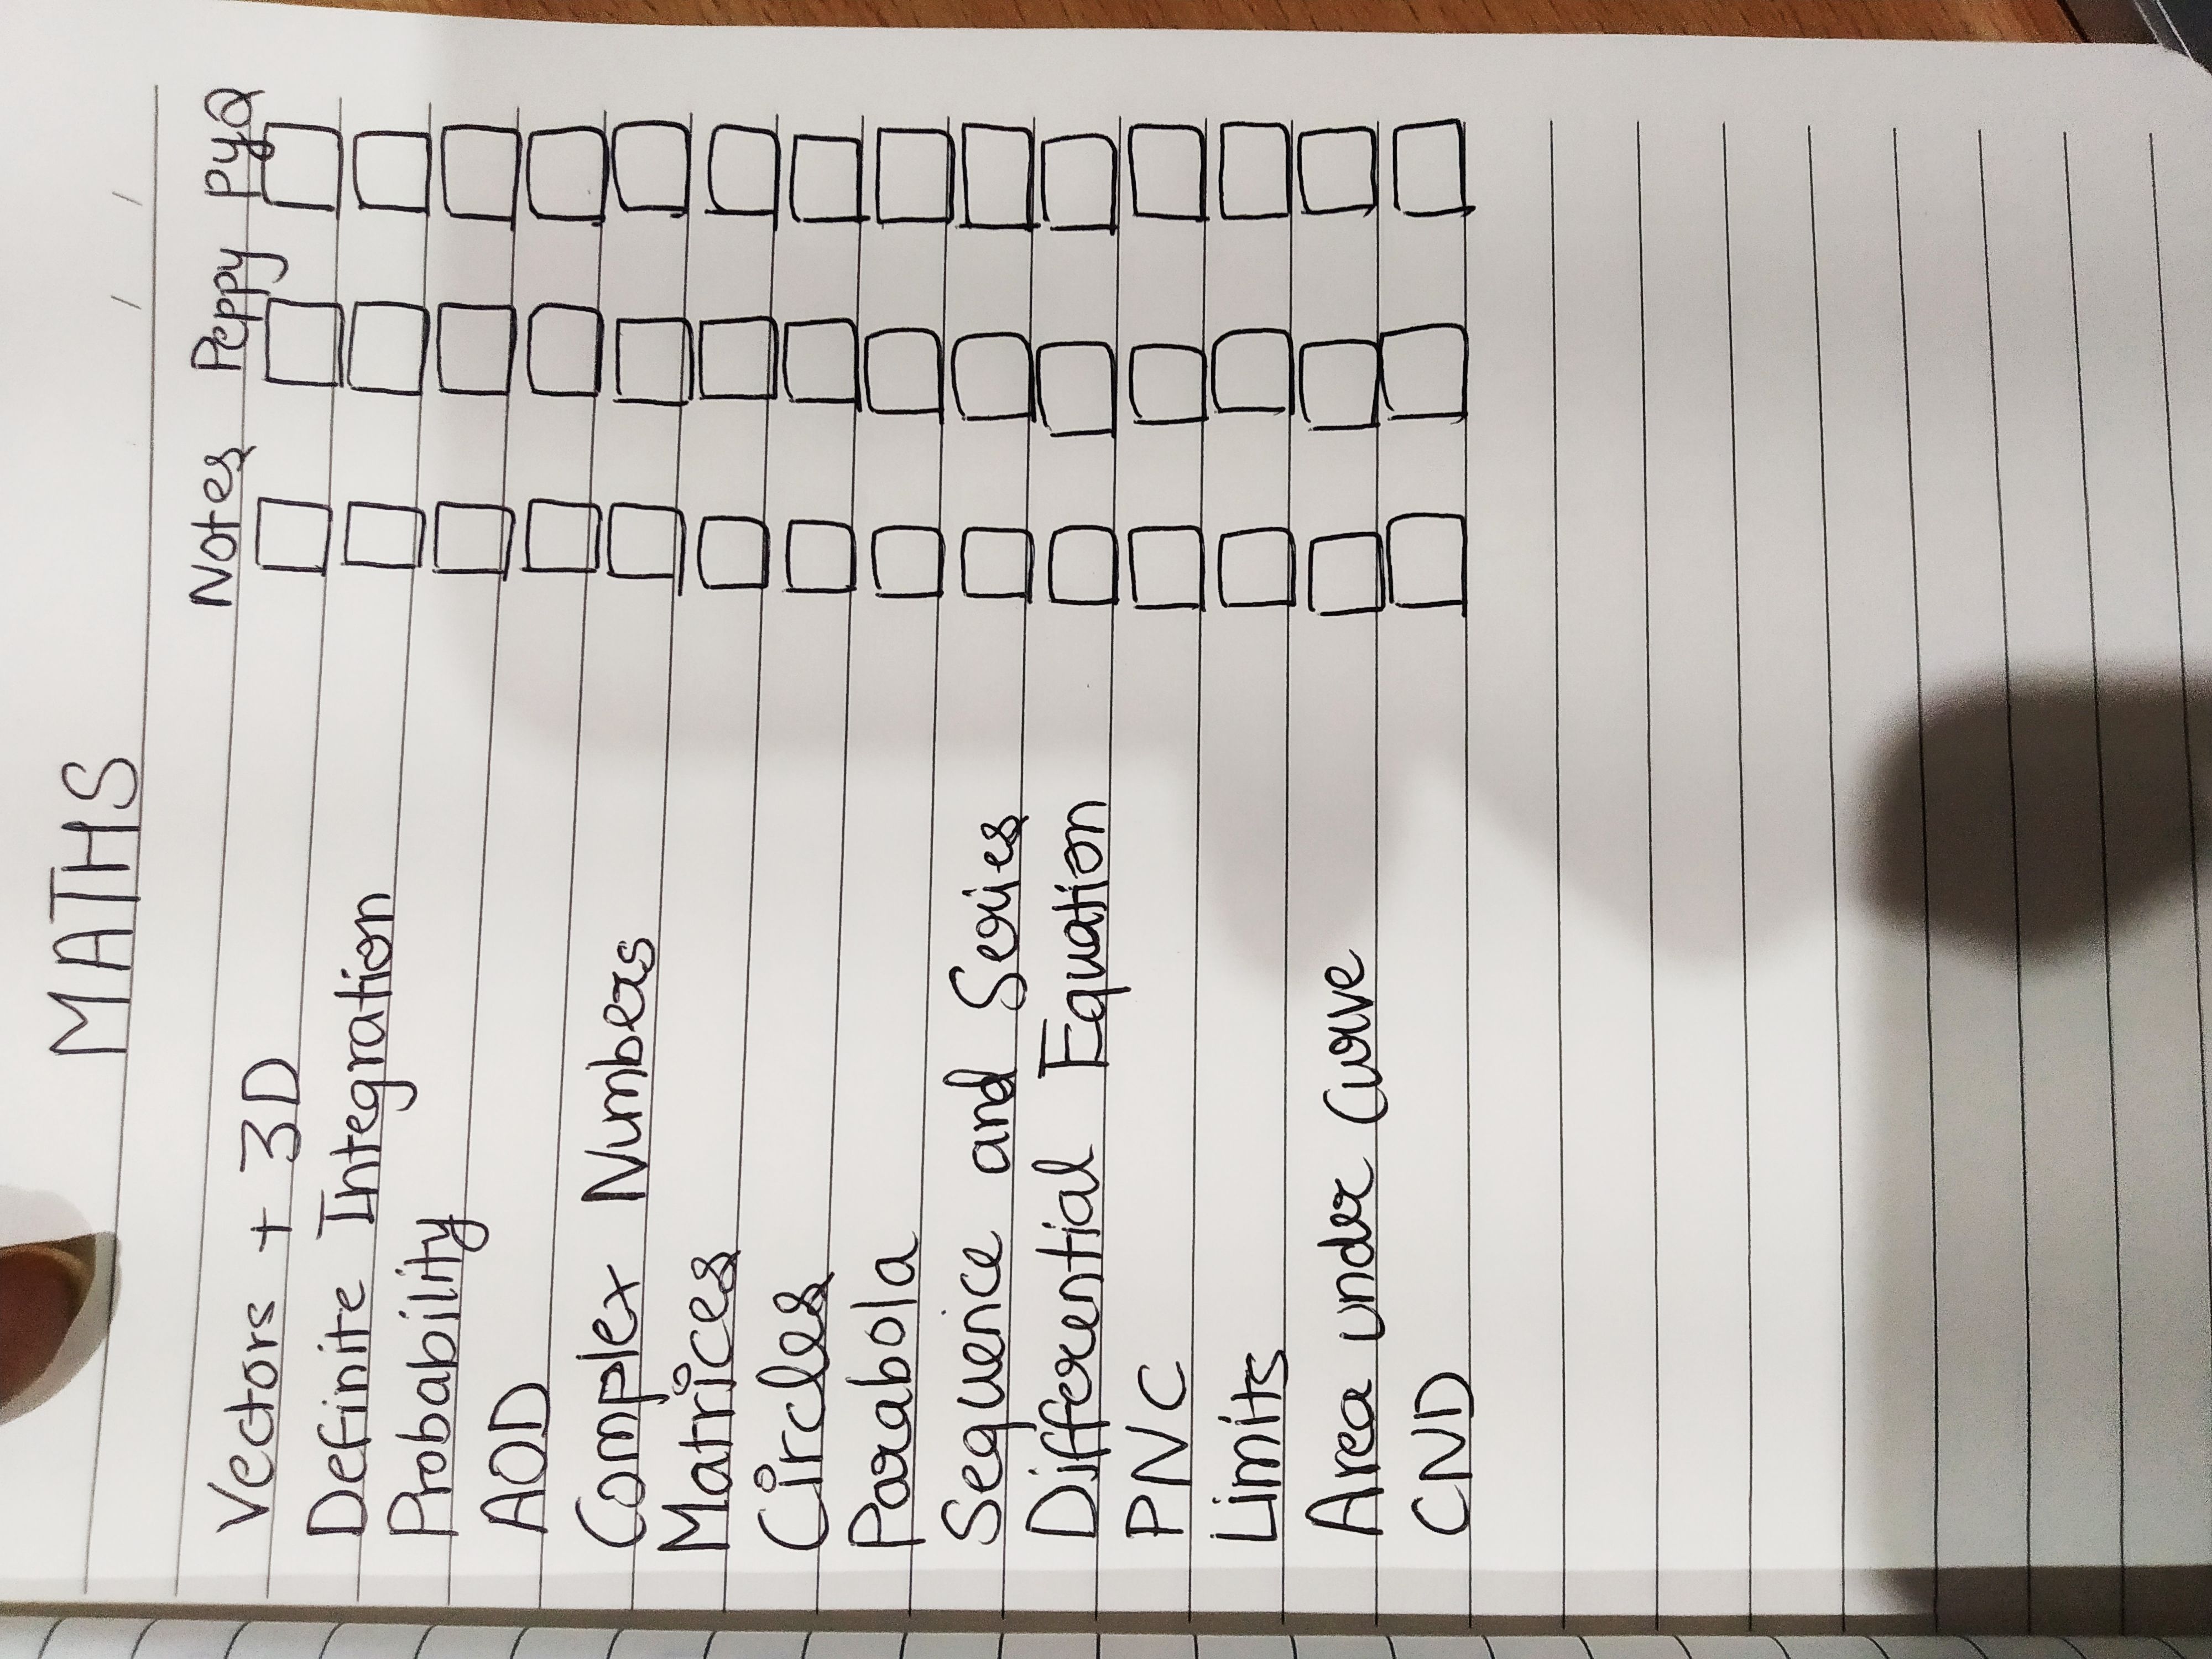 MATHS
Notes Peppy PyQ
Vectors + 3D
Definite Integration
Probability
AOD
Complex Numbers
Matrices
Circles
Parabola
Sequence and Series
Differential Equation
PNC
Limits
Area under Curve
CND